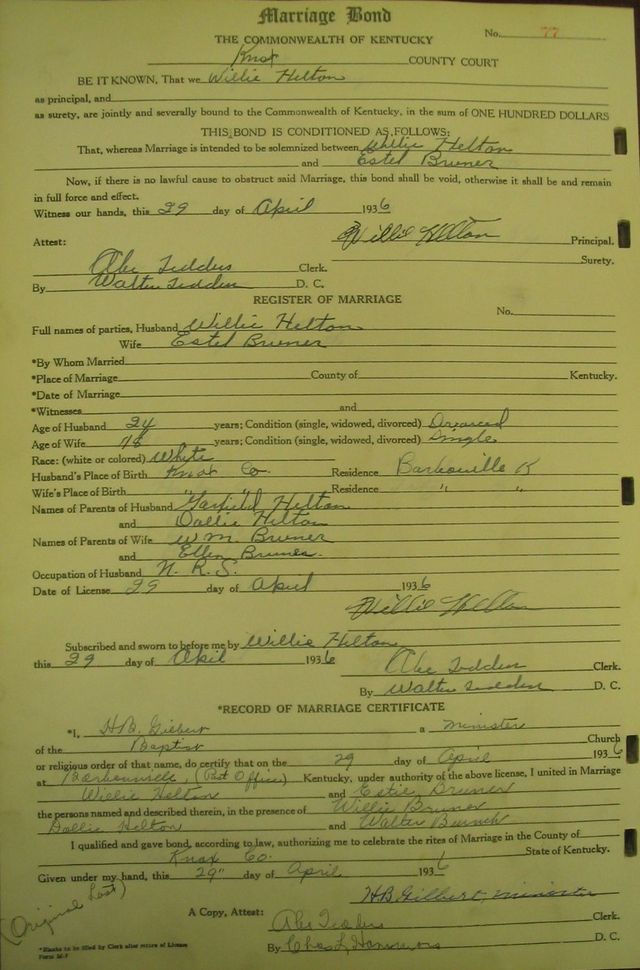 Marriage Bond
THE COMMONWEALTH OF KENTUCKY
No. 77
Knox COUNTY COURT
BE IT KNOWN, That we Willie Helton
as principal, and
as surety, are jointly and severally bound to the Commonwealth of Kentucky, in the sum of ONE HUNDRED DOLLARS
THIS BOND IS CONDITIONED AS FOLLOWS:
That, whereas Marriage is intended to be solemnized between Willie Helton
and Estel Bruner
Now, if there is no lawful cause to obstruct said Marriage, this bond shall be void, otherwise it shall be and remain
in full force and effect.
Witness our hands, this 29 day of April 1936
Willie Helton Principal.
Attest:
Surety.
Abe Tedders Clerk.
By Walter Tedders D. C.
REGISTER OF MARRIAGE
No.
Full names of parties, Husband Willie Helton
Wife Estel Bruner
*By Whom Married
*Place of Marriage County of Kentucky.
*Date of Marriage
*Witnesses and
Age of Husband 24 years; Condition (single, widowed, divorced) Divorced
Age of Wife 18 years; Condition (single, widowed, divorced) Single
Race: (white or colored) White
Husband's Place of Birth Knox Co. Residence Barbourville K
Wife's Place of Birth " " Residence " "
Names of Parents of Husband Garfield Helton
and Dollie Helton
Names of Parents of Wife W.M. Bruner
and Ellen Bruner
Occupation of Husband N. R. S.
Date of License 29 day of April 1936
Willie Helton
Subscribed and sworn to before me by Willie Helton
this 29 day of April 1936 Abe Tedders Clerk.
By Walter Tedders D. C.
*RECORD OF MARRIAGE CERTIFICATE
*I, H.B. Gilbert a minister
of the Baptist Church
or religious order of that name, do certify that on the 29 day of April 1936
at Barbourville, (Post Office) Kentucky, under authority of the above license, I united in Marriage
Willie Helton and Estie Bruner
the persons named and described therein, in the presence of Willie Bruner
Dollie Helton and Walter
I qualified and gave bond, according to law, authorizing me to celebrate the rites of Marriage in the County of
Knox Co. State of Kentucky.
Given under my hand, this 29" day of April 1936
H.B. Gilbert, minister
(Original Lost)
A Copy, Attest: Abe Tedders Clerk.
By Chas L. Hammons D. C.
*Blanks to be filled by Clerk after return of License
Form M-7